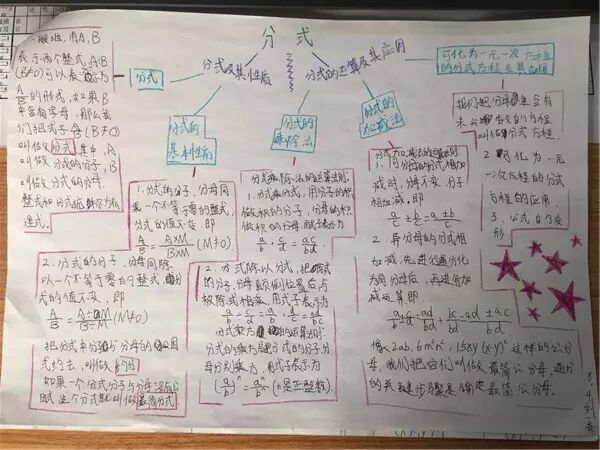 分式
分式及其性质
分式的运算及其应用
可化为一元一次方程
的分式方程及其应用
分式
分式的
基本性质
分式的
乘除法
分式的
加减法
一般地,用A,B
表示两个整式,A÷B
(B≠0)可以表示为
A/B的形式,如果B
中含有字母,那么我
们把式子A/B(B≠0)
叫做分式,其中,A
叫做分式的分子,B
叫做分式的分母.
整式和分式统称为有
理式.
1.分式的分子,分母同
乘一个不等于零的整式,
分式的值不变,即
A/B=A×M/B×M(M≠0)
2.分式的分子,分母同除
以一个不等于零的整式,分
式的值不变,即
A/B=A÷M/B÷M(M≠0)
把分式中分子与分母的公因
式约去,叫做约分
如果一个分式分子与分母没有公
因式,这个分式叫做最简分式.
分式乘除法的运算法则:
1.分式乘分式,用分子的积
做积的分子,分母的积
做积的分母,用式子表示为
a/b·c/d=ac/bd
2.分式除以分式,把除式
的分子,分母颠倒位置后与
被除式相乘,用式子表示为
a/b÷c/d=a/b·d/c=ad/bc
分式的乘方是把分式的分子分
母分别乘方,用式子表示为
(a/b)ⁿ=aⁿ/bⁿ(n是正整数)
分式加减法的运算法则:
1.同分母的分式相加
减时,分母不变,分子
相加减,即
a/c±b/c=a±b/c
2.异分母的分式相
加减,先进行通分化
为同分母后,再进行加
减运算即:
像2ab,6m²n²,15xy(x-y)²这样的公分
母,我们把它们叫做最简公分母,通分
的关键步骤是确定最简公分母.
我们把分母里含有
未知数的方程
叫做分式方程.
2.可化为一元
一次方程的分式
方程的应用
3.公式的变
形